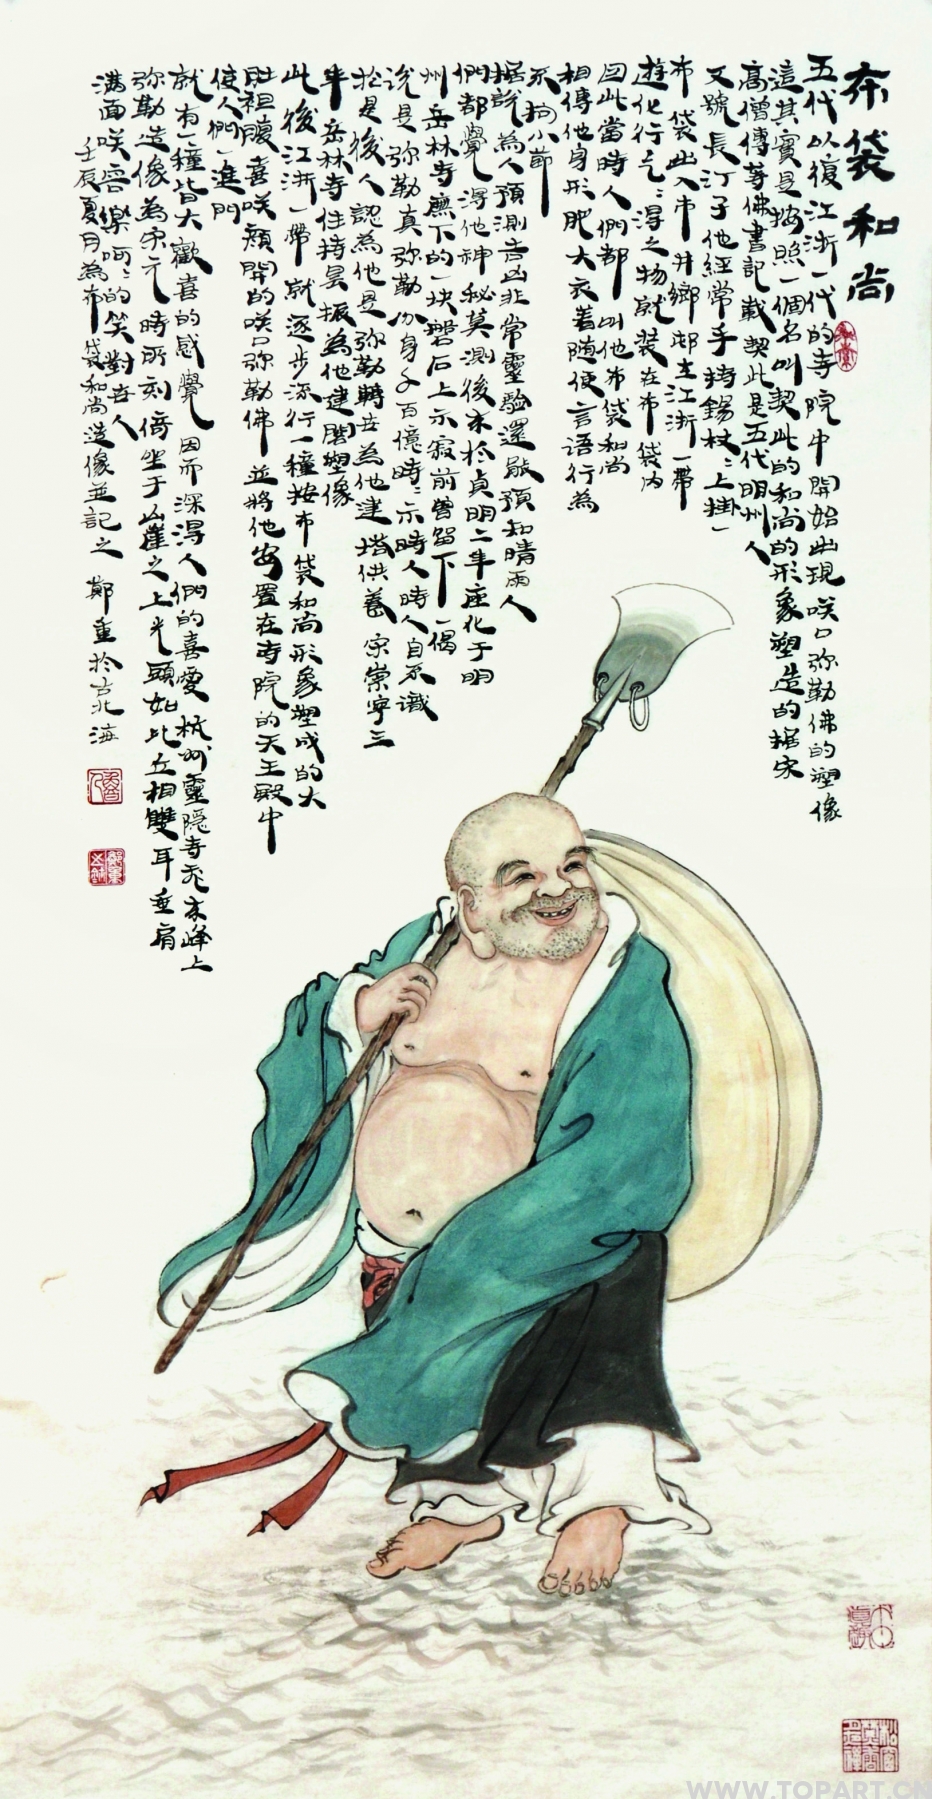 布袋和尚
五代以復江浙一代的寺院中開始出現咲口弥勒佛的塑像
這其實是按照一個名叫契此的和尚的形象塑造的據宋
高僧傳等佛書記載契此是五代明州人
又號長汀子他經常手持錫杖〻上掛一
布袋出入市井鄉邨在江浙一帶
遊化行乞〻得之物就裝在布袋内
因此當時人們都叫他布袋和尚
相傳他身形肥大衣着随便言語行為
不拘小節
據説為人預測吉凶非常靈驗還能預知晴雨人
們都覺得他神秘莫測後来於貞明二年座化于明
州岳林寺廡下的一块磐石上示寂前曾留下一偈
说是弥勒真弥勒分身千百億時〻示時人時人自不識
於是後人認為他是弥勒轉世為他建塔供養宋崇寧三
年岳林寺住持曇振為他建閣塑像
此後江浙一帶就逐步流行一種按布袋和尚形象塑成的大
肚袒腹喜咲顏開的咲口弥勒佛並將他安置在寺院的天王殿中
使人們一進門
就有一種皆大歡喜的感覺因而深得人們的喜愛杭州靈隱寺飛来峰上
弥勒造像為宋元時所刻倚坐于山崖之上光頭如比丘相雙耳垂肩
满面咲容樂呵〻的笑對世人
壬辰夏月為布袋和尚造像並記之 鄭重於古北海
WWW.TOPART.CN